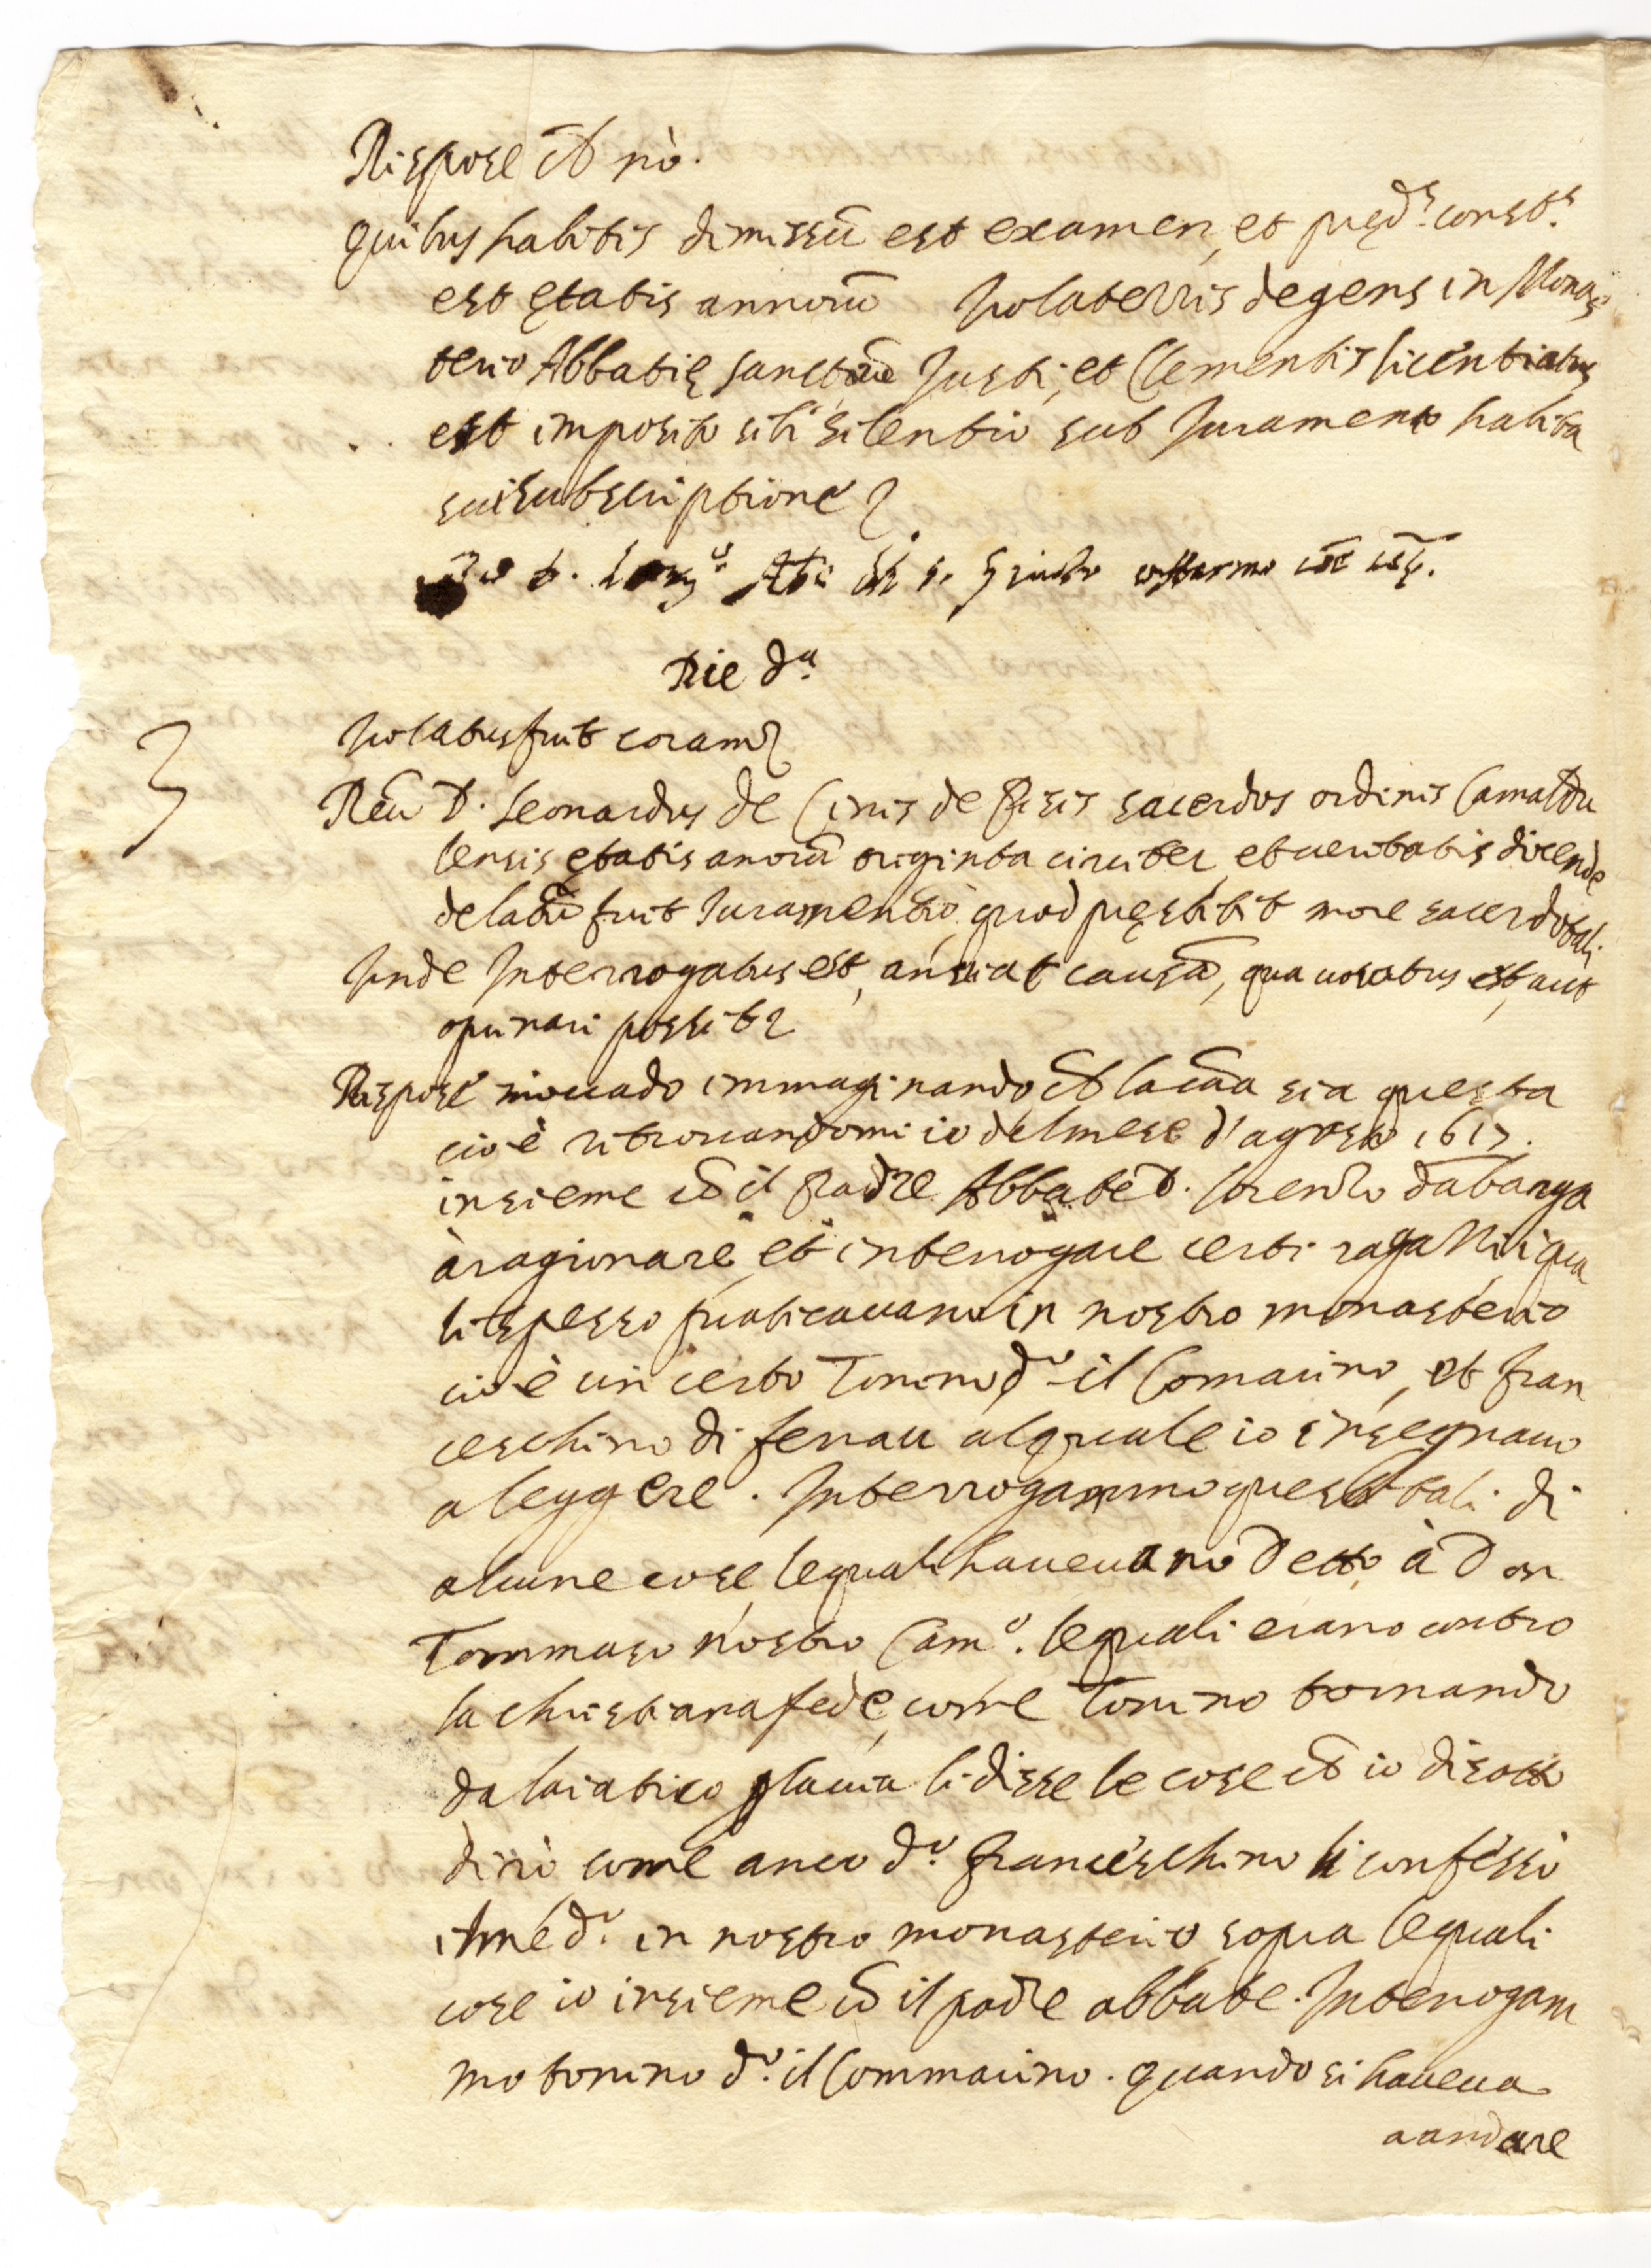 Rispose ch nò.
Quibus habitis dimissũ est examen, et pręd.s const.s
est ętatis annorũ Volaterris degens in Monas
terio Abbatię Sanctorũ Justi, et Clementis licentiatus
est imposito sibi silentio sub Juramento habita
sui subscriptione
Die d.a
Vocatus fuit coram
Reũ D. Leonardus de Cinis de Pisis sacerdos ordinis Camaldu
lensis ętatis anorũ triginta circiter, et ueritatis dicende
delatũ fuit Juramentũ, quod pręstitit more sacerdotali
Unde Interrogatus est, an sciat causã, qua uocatus est, aut
opinari possit
Rispose mi uado immaginando, ch la cãa sia questa
cioè ritrouandomi io del mese d'agosto 1617.
insieme cõ il Padre Abbate D. Lorenzo
à ragionare, et interrogare certi ragazzi i qua
li spesso praticauano in nostro monasterio
cioè un certo Tonino d.o il Comacino, et Fran
ceschino di ferrau al quale io insegnauo
a leggere. Interrogammo questi tali di
alcune cose, lequali haueuano detto à Don
Tommaso nostro Cam.o lequali erano contro
la christiana fede, come Tonino tornando
da laiatico p la uia li disse le cose ch io di sotto
dirò come anco d.o franceschino li confessò
in nostro monasterio, sopra lequali
cose io insieme cõ il padre abbate. Interrogam
mo tonino d.o il Commacino. quando si haueua
a andare